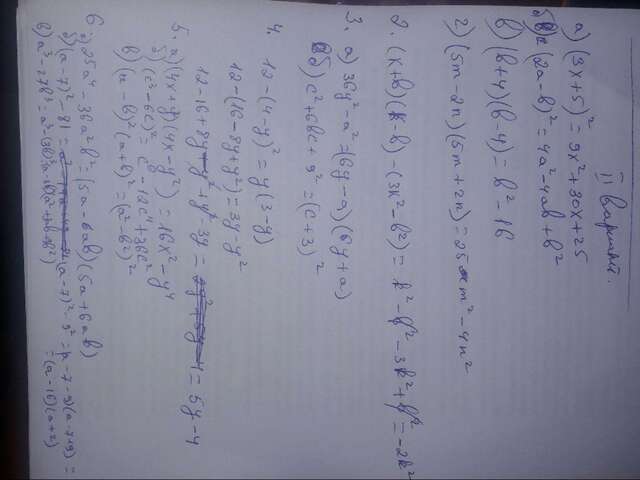 II вариант.
а) (3x+5)² = 9x²+30x+25
б) (2a-b)² = 4a²-4ab+b²
в) (b+4)(b-4) = b²-16
г) (5m-2n)(5m+2n) = 25m²-4n²
2. (x+b)(x-b)-(3x²-b²) = x²-b²-3x²+b² = -2x²
3. а) 36y²-a² = (6y-a)(6y+a)
б) c²+6bc+9² = (c+3)²
4. 12-(4-y)² = y(3-y)
12-(16-8y+y²) = 3y-y²
12-16+8y-y²+y²-3y = 5y-4
5. а) (4x+y²)(4x-y²) = 16x²-y⁴
б) (c³-6c)² = c⁶-12c⁴+36c²
в) (a-b)²(a+b)² = (a²-b²)²
6. а) 25a⁴-36a²b² = (5a-6ab)(5a+6ab)
б) (a-7)²-81 = (a-7)²-9² = (a-7-9)(a-7+9) =
= (a-16)(a+2)
в) a³-27b³ = a³-(3b)³